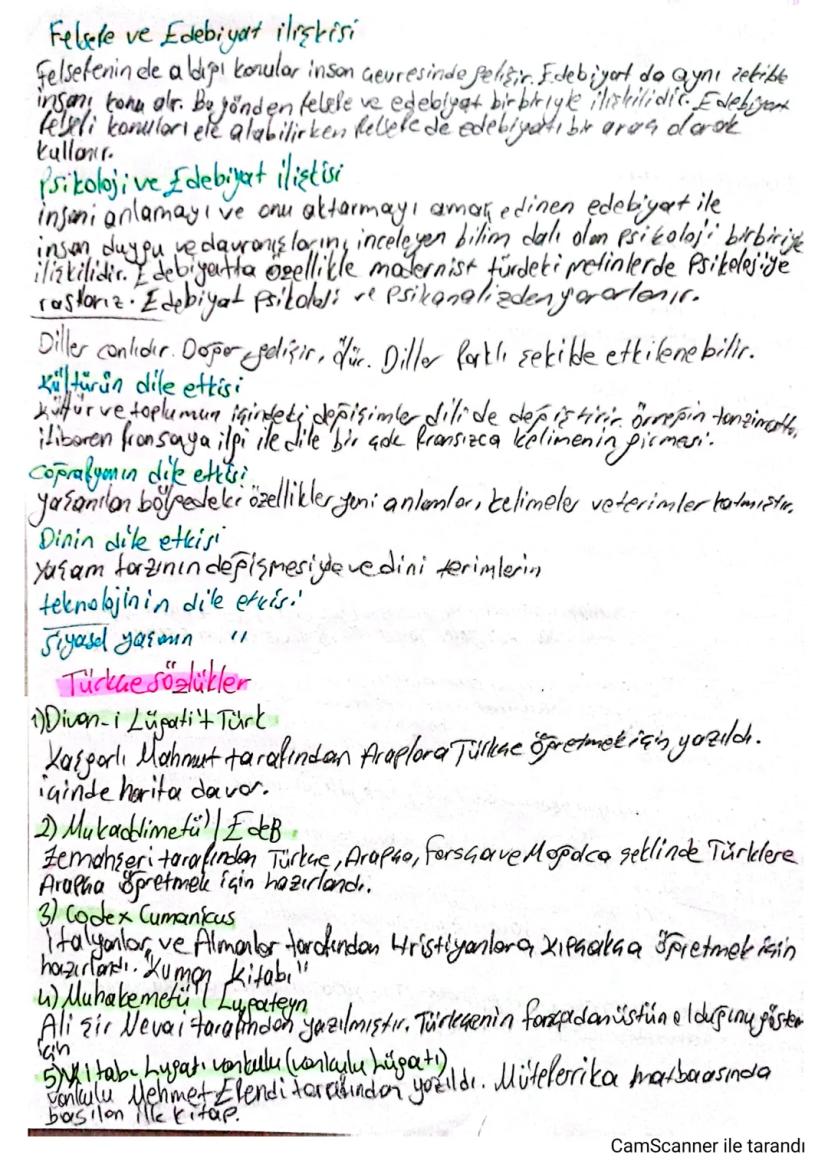 Felsefe ve Edebiyat ilişkisi
Felsefenin ele aldığı konular insan çevresinde gelişir. Edebiyat da aynı şekilde
insanı konu alır. Bu yönden felsefe ve edebiyat birbiriyle ilişkilidir. Edebiyat
felsefi konuları ele alabilirken felsefe de edebiyatı bir araç olarak
kullanır.
Psikoloji ve Edebiyat ilişkisi
insanı anlamayı ve onu aktarmayı amaç edinen edebiyat ile
insan duygu ve davranışlarını inceleyen bilim dalı olan psikoloji birbiriyle
ilişkilidir. Edebiyatta özellikle modernist türdeki metinlerde Psikolojiye
rastlarız. Edebiyat psikoloji ve psikanalizden yararlanır.
Diller canlıdır. Doğar, gelişir, ölür. Diller farklı şekilde etkilenebilir.
Kültürün dile etkisi
Kültür ve toplumun içindeki değişimler dili de değiştirir. örneğin tanzimattan
itibaren fransaya ilgi ile dile bir çok fransızca kelimenin girmesi.
Coğrafyanın dile etkisi
yaşanılan bölgedeki özellikler yeni anlamlar, kelimeler ve terimler katmıştır.
Dinin dile etkisi
Yaşam tarzının değişmesiyle ve dini terimlerin
teknolojinin dile etkisi
Siyasal yaşamın "
Türkçe sözlükler
1) Divan-i Lügati't Türk
Kaşgarlı Mahmut tarafından Araplara Türkçe öğretmek için yazıldı.
içinde harita da var.
2) Mukaddimetü'l EdeB
Zemahşeri tarafından Türkçe, Arapça, Farsça ve Moğolca şeklinde Türklere
Arapça öğretmek için hazırlandı.
3) Codex Cumanicus
italyanlar ve Almanlar tarafından Hristiyanlara Kıpçakça öğretmek için
hazırlandı. "Kuman Kitabı"
4) Muhakemetü'l Lugateyn
Ali Şir Nevai tarafından yazılmıştır. Türkçenin farsçadan üstün olduğunu göster
için
5) Kitab-ı Lugat-ı vankulu (vankulu Lügatı)
Vankulu Mehmet Efendi tarafından yazıldı. Müteferrika matbaasında
basılan ilk kitap.
CamScanner ile tarandı